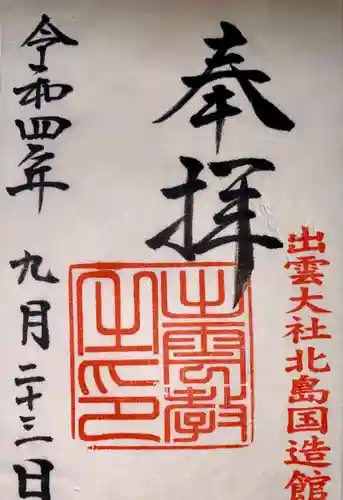 出雲大社北島国造館
奉拝
出雲教
之印
令和四年九月二十三日